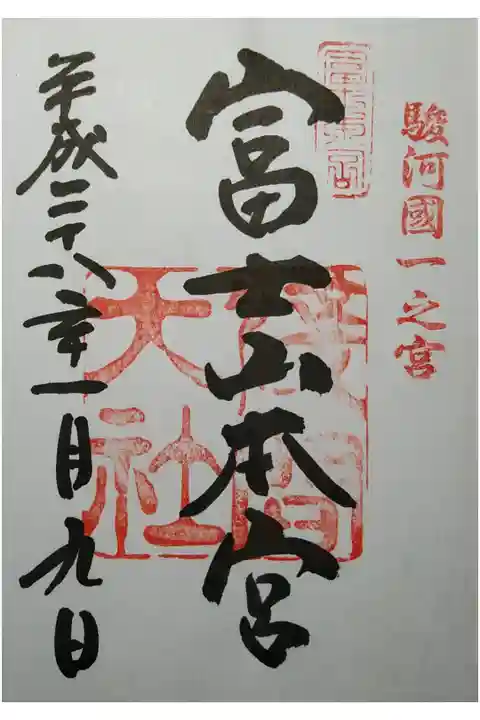 駿河國一之宮
富士山本宮
淺間
大社
平成二十八年一月九日